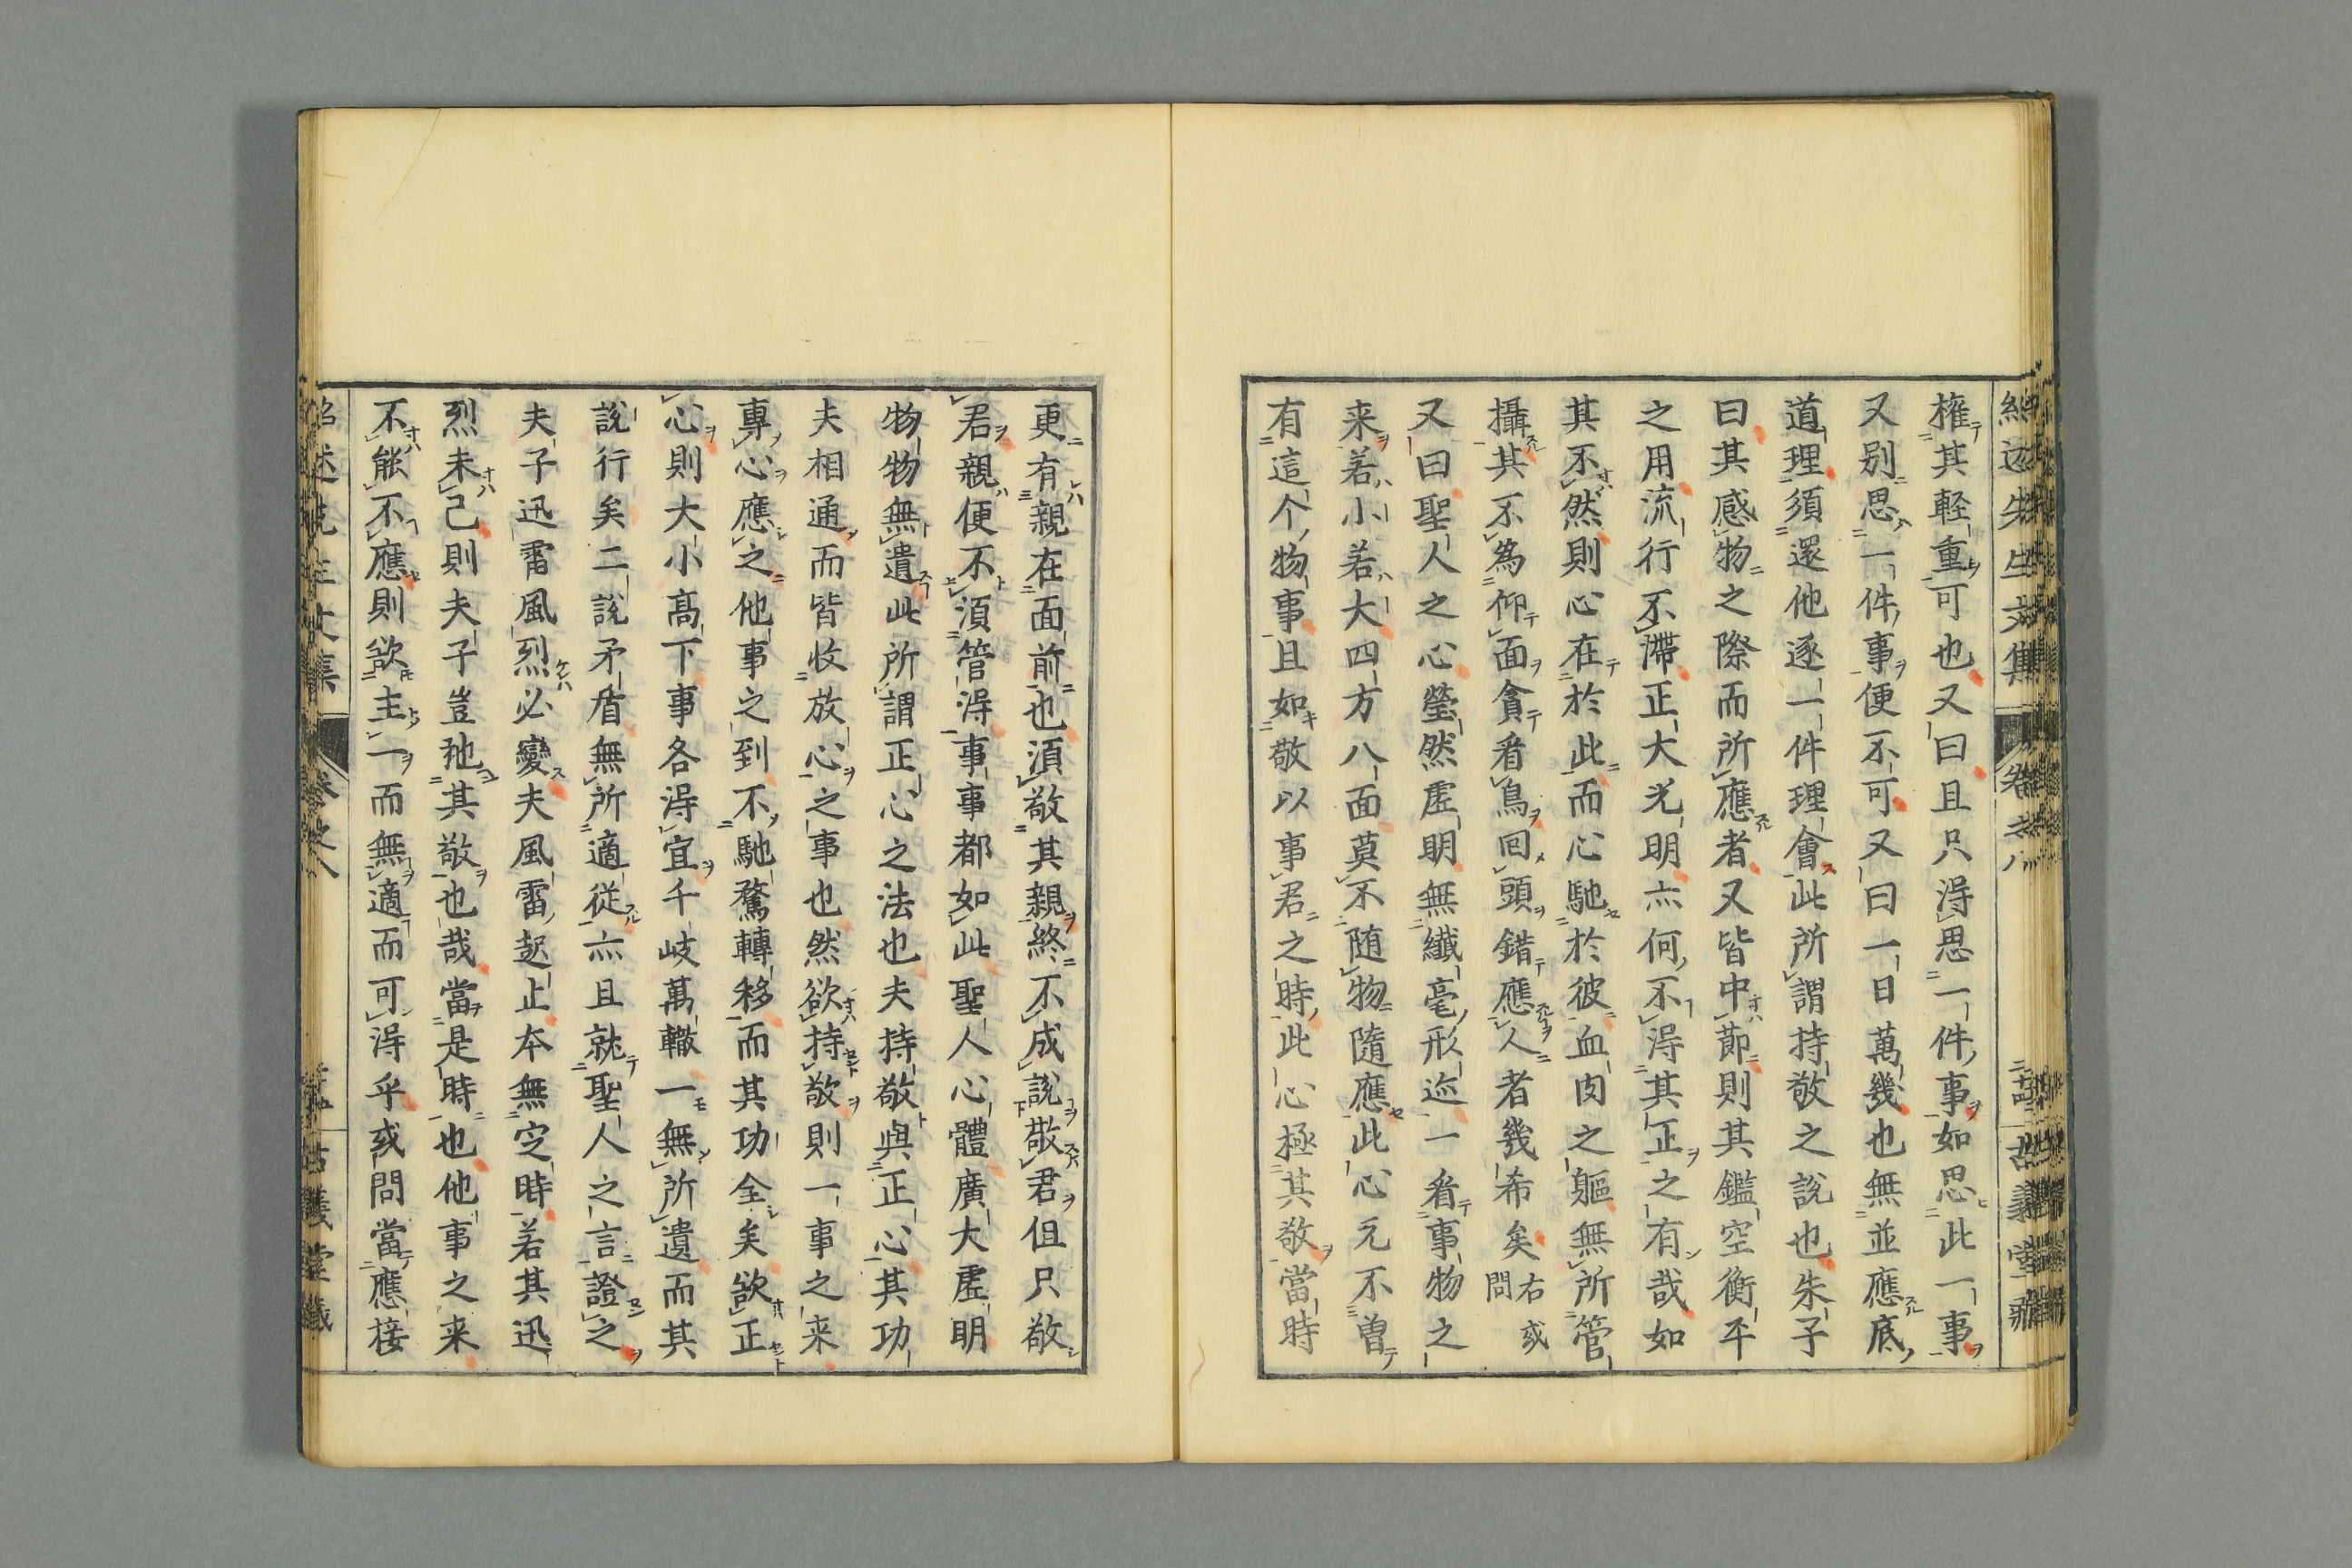 紹述先生文集 卷之八 古義堂藏
権其軽重可也又曰且只淂思一件事如思此一事
又別思一件事便不可又曰一日萬幾也無並應底
道理須還他逐一件理會此所謂持敬之說也朱子
曰其感物之際而所應者又皆中節則其鑑空衡平
之用流行不滯正大光明亦何不淂其正之有哉如
其不然則心在於此而心馳於彼血肉之軀無所管
攝其不為仰面貪看鳥回頭錯應人者幾希矣右或問
又曰聖人之心瑩然虛明無纖毫形迹一看事物之
来若小若大四方八面莫不随物隨應此心元不曽
有這个物事且如敬以事君之時此心極其敬當時
更有親在面前也湏敬其親終不成說敬君但只敬
君親便不湏管淂事事都如此聖人心體廣大虛明
物物無遺此所謂正心之法也夫持敬與正心其功
夫相通而皆收放心之事也然欲持敬則一事之来
專心應之他事之到不馳騖轉移而其功全矣欲正
心則大小高下事各淂宜千岐萬轍一無所遺而其
說行矣二說矛盾無所適從亦且就聖人之言證之
夫子迅雷風烈必變夫風雷起止本無定時若其迅
烈未已則夫子豈弛其敬也哉當是時也他事之来
不能不應則欲主一而無適而可淂乎或問當應接
紹述先生文集 卷之八 古義堂藏